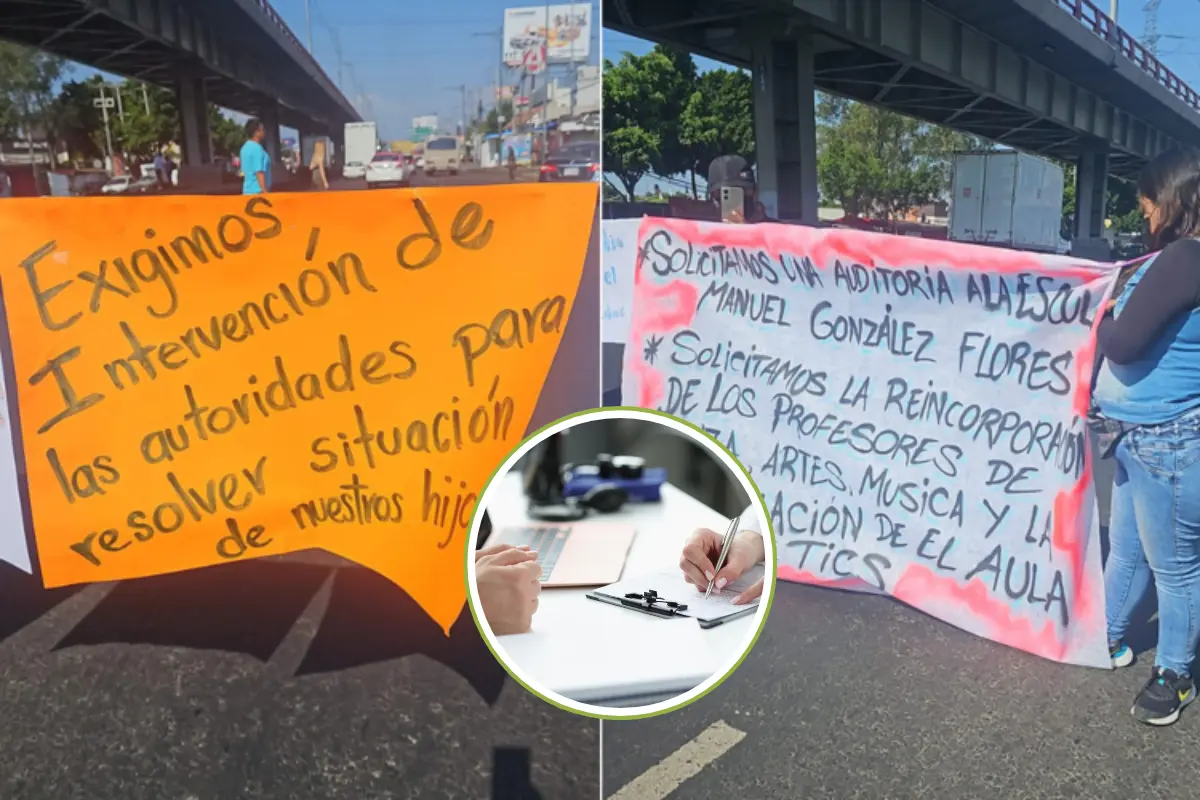 Exigimos
Intervención de
las autoridades para
resolver situación
de nuestros hijo
*SOLICITAMOS UNA AUDITORÍA A LA ESCUL
MANUEL GONZÁLEZ FLORES
* SOLICITAMOS LA REINCORPORACIÓN
DE LOS PROFESORES DE
ZA, ARTES, MUSICA Y LA
ACIÓN DE EL AULA
TICS
el